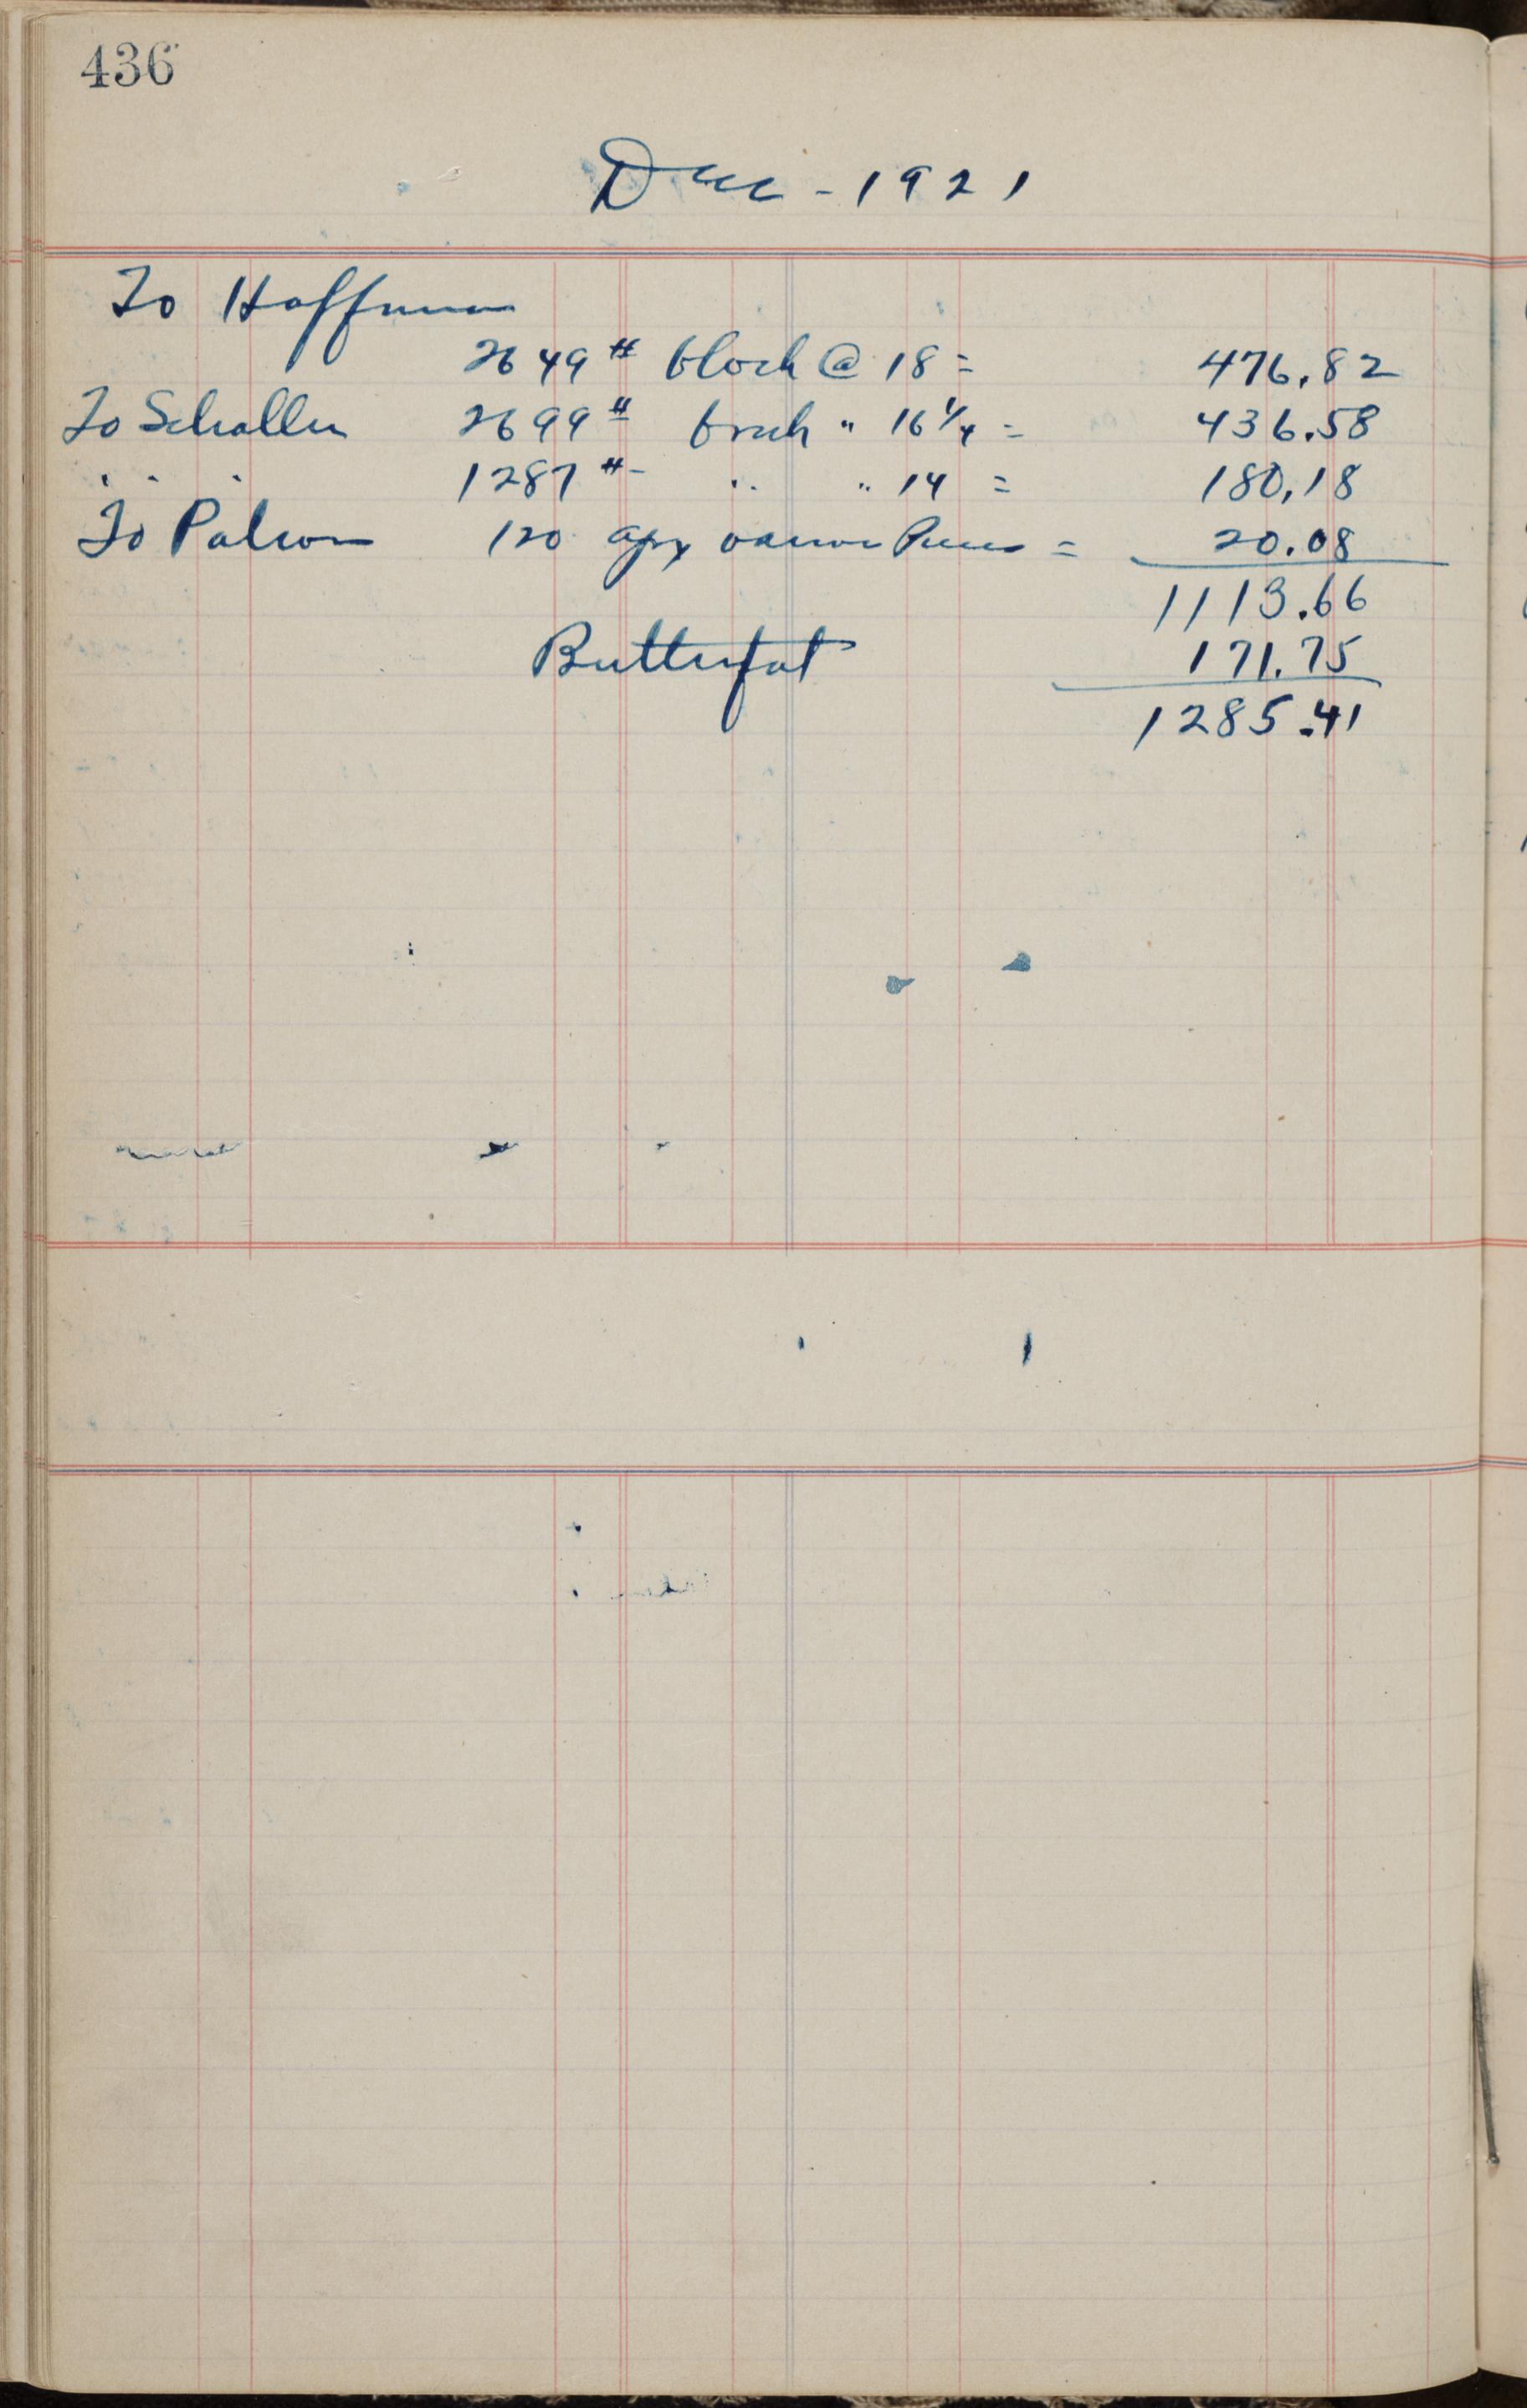 436
Dec - 1921
To Hoffman
2649 # block @ 18 = 476.82
To Schaller 2699 # brick " 16 1/4 = 436.58
" " " 1287 # - " " 14 = 180.18
To Patron 120 apx various Prices = 20.08
1113.66
Butterfat 171.75
1285.41